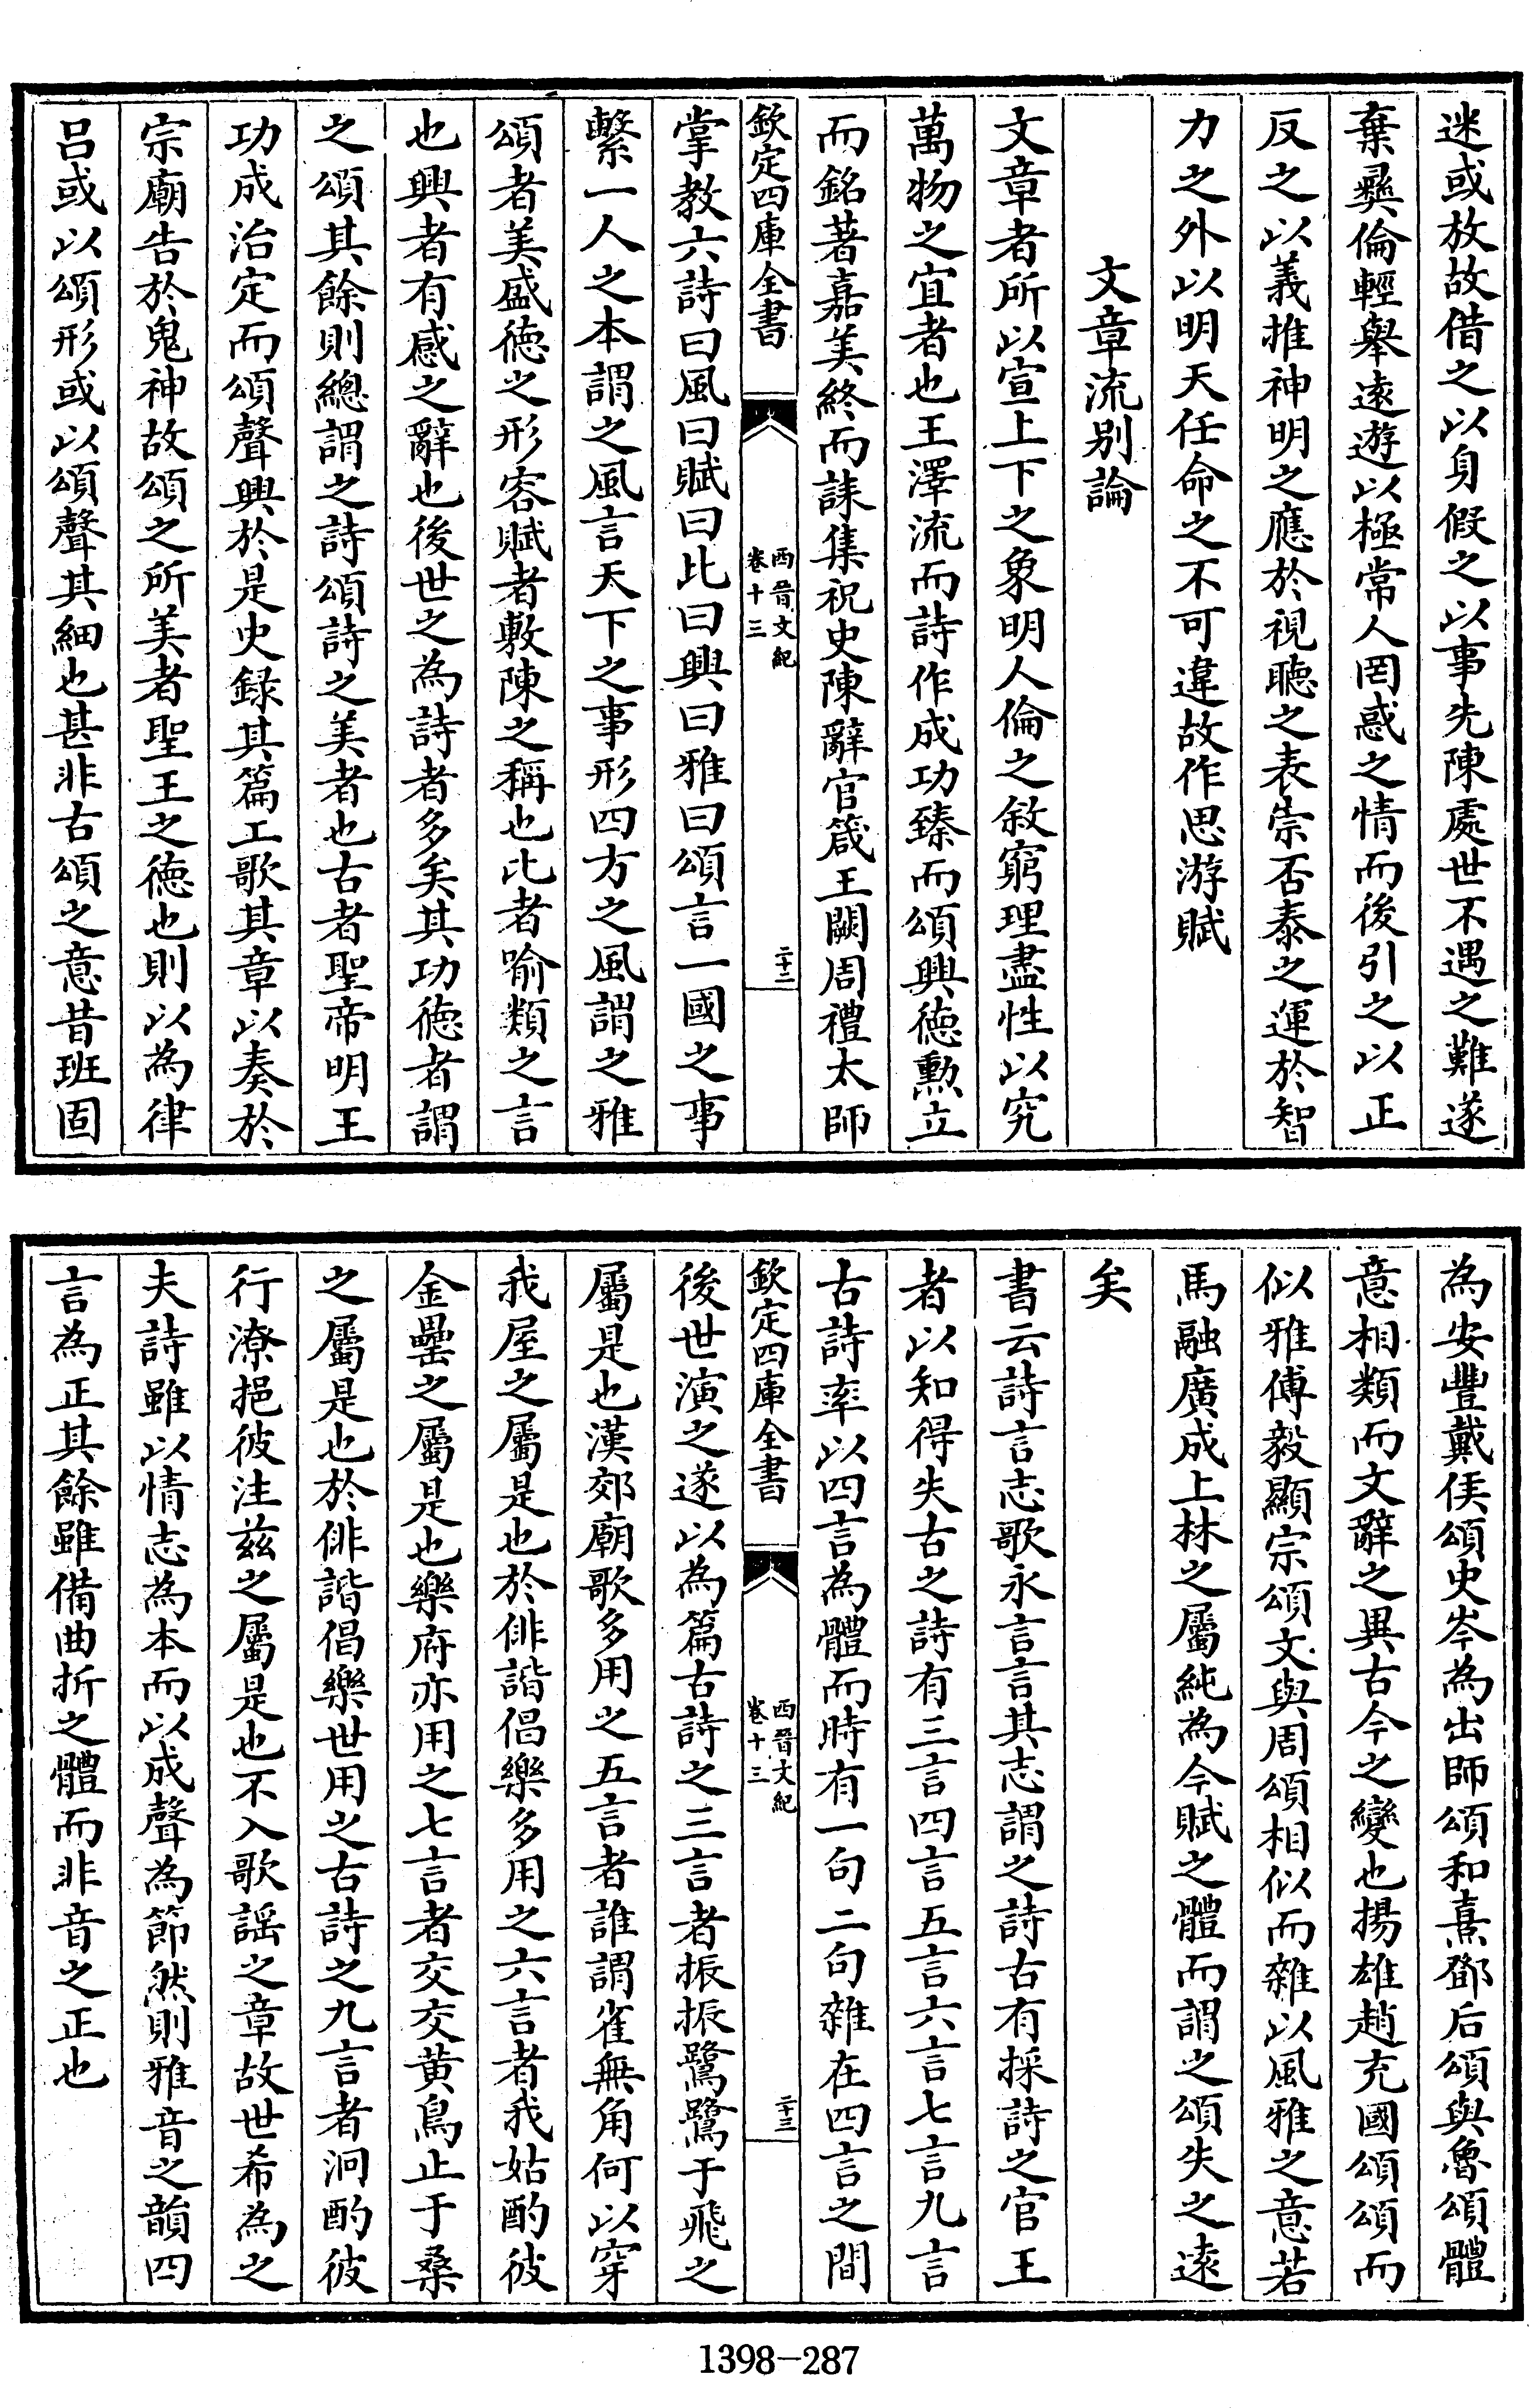 迷或放故借之以身假之以事先陳處世不遇之難遂
棄彛倫輕舉遠遊以極常人罔惑之情而後引之以正
反之以義推神明之應於視聽之表崇否泰之運於智
力之外以明天任命之不可違故作思游賦
文章流别論
文章者所以宣上下之象明人倫之敘窮理盡性以究
萬物之宜者也王澤流而詩作成功臻而頌興徳勲立
而銘著嘉美終而誄集祝史陳辭官箴王闕周禮太師
欽定四庫全書
西晉文紀
卷十三
二十二
掌教六詩曰風曰賦曰比曰興曰雅曰頌言一國之事
繫一人之本謂之風言天下之事形四方之風謂之雅
頌者美盛徳之形容賦者敷陳之稱也比者喻類之言
也興者有感之辭也後世之為詩者多矣其功徳者謂
之頌其餘則總謂之詩頌詩之美者也古者聖帝明王
功成治定而頌聲興於是史録其篇工歌其章以奏於
宗廟告於鬼神故頌之所美者聖王之徳也則以為律
吕或以頌形或以頌聲其細也甚非古頌之意昔班固
為安豐戴侯頌史岑為出師頌和熹鄧后頌與魯頌體
意相類而文辭之異古今之變也揚雄趙充國頌頌而
似雅傅毅顯宗頌文與周頌相似而雜以風雅之意若
馬融廣成上林之屬純為今賦之體而謂之頌失之遠
矣
書云詩言志歌永言言其志謂之詩古有採詩之官王
者以知得失古之詩有三言四言五言六言七言九言
古詩率以四言為體而時有一句二句雜在四言之間
欽定四庫全書
西晉文紀
卷十三
二十三
後世演之遂以為篇古詩之三言者振振鷺鷺于飛之
屬是也漢郊廟歌多用之五言者誰謂雀無角何以穿
我屋之屬是也於俳諧倡樂多用之六言者我姑酌彼
金罍之屬是也樂府亦用之七言者交交黄鳥止于桑
之屬是也於俳諧倡樂世用之古詩之九言者泂酌彼
行潦挹彼注兹之屬是也不入歌謡之章故世希為之
夫詩雖以情志為本而以成聲為節然則雅音之韻四
言為正其餘雖備曲折之體而非音之正也
1398-287